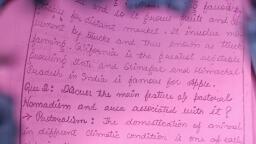 and so it grows fruits and
for distant market. It involve mo
ement by trucks and thus known as truck
farming. California is the greatest vegetable
growing state and Srinagar and Himachal
Pradesh in India is famous for Apple.
Que 2: Discuss the main feature of pastoral
Nomadism and area associated with it?
→ Pastoralism: The domestication of animal
in different climatic condition is one of each